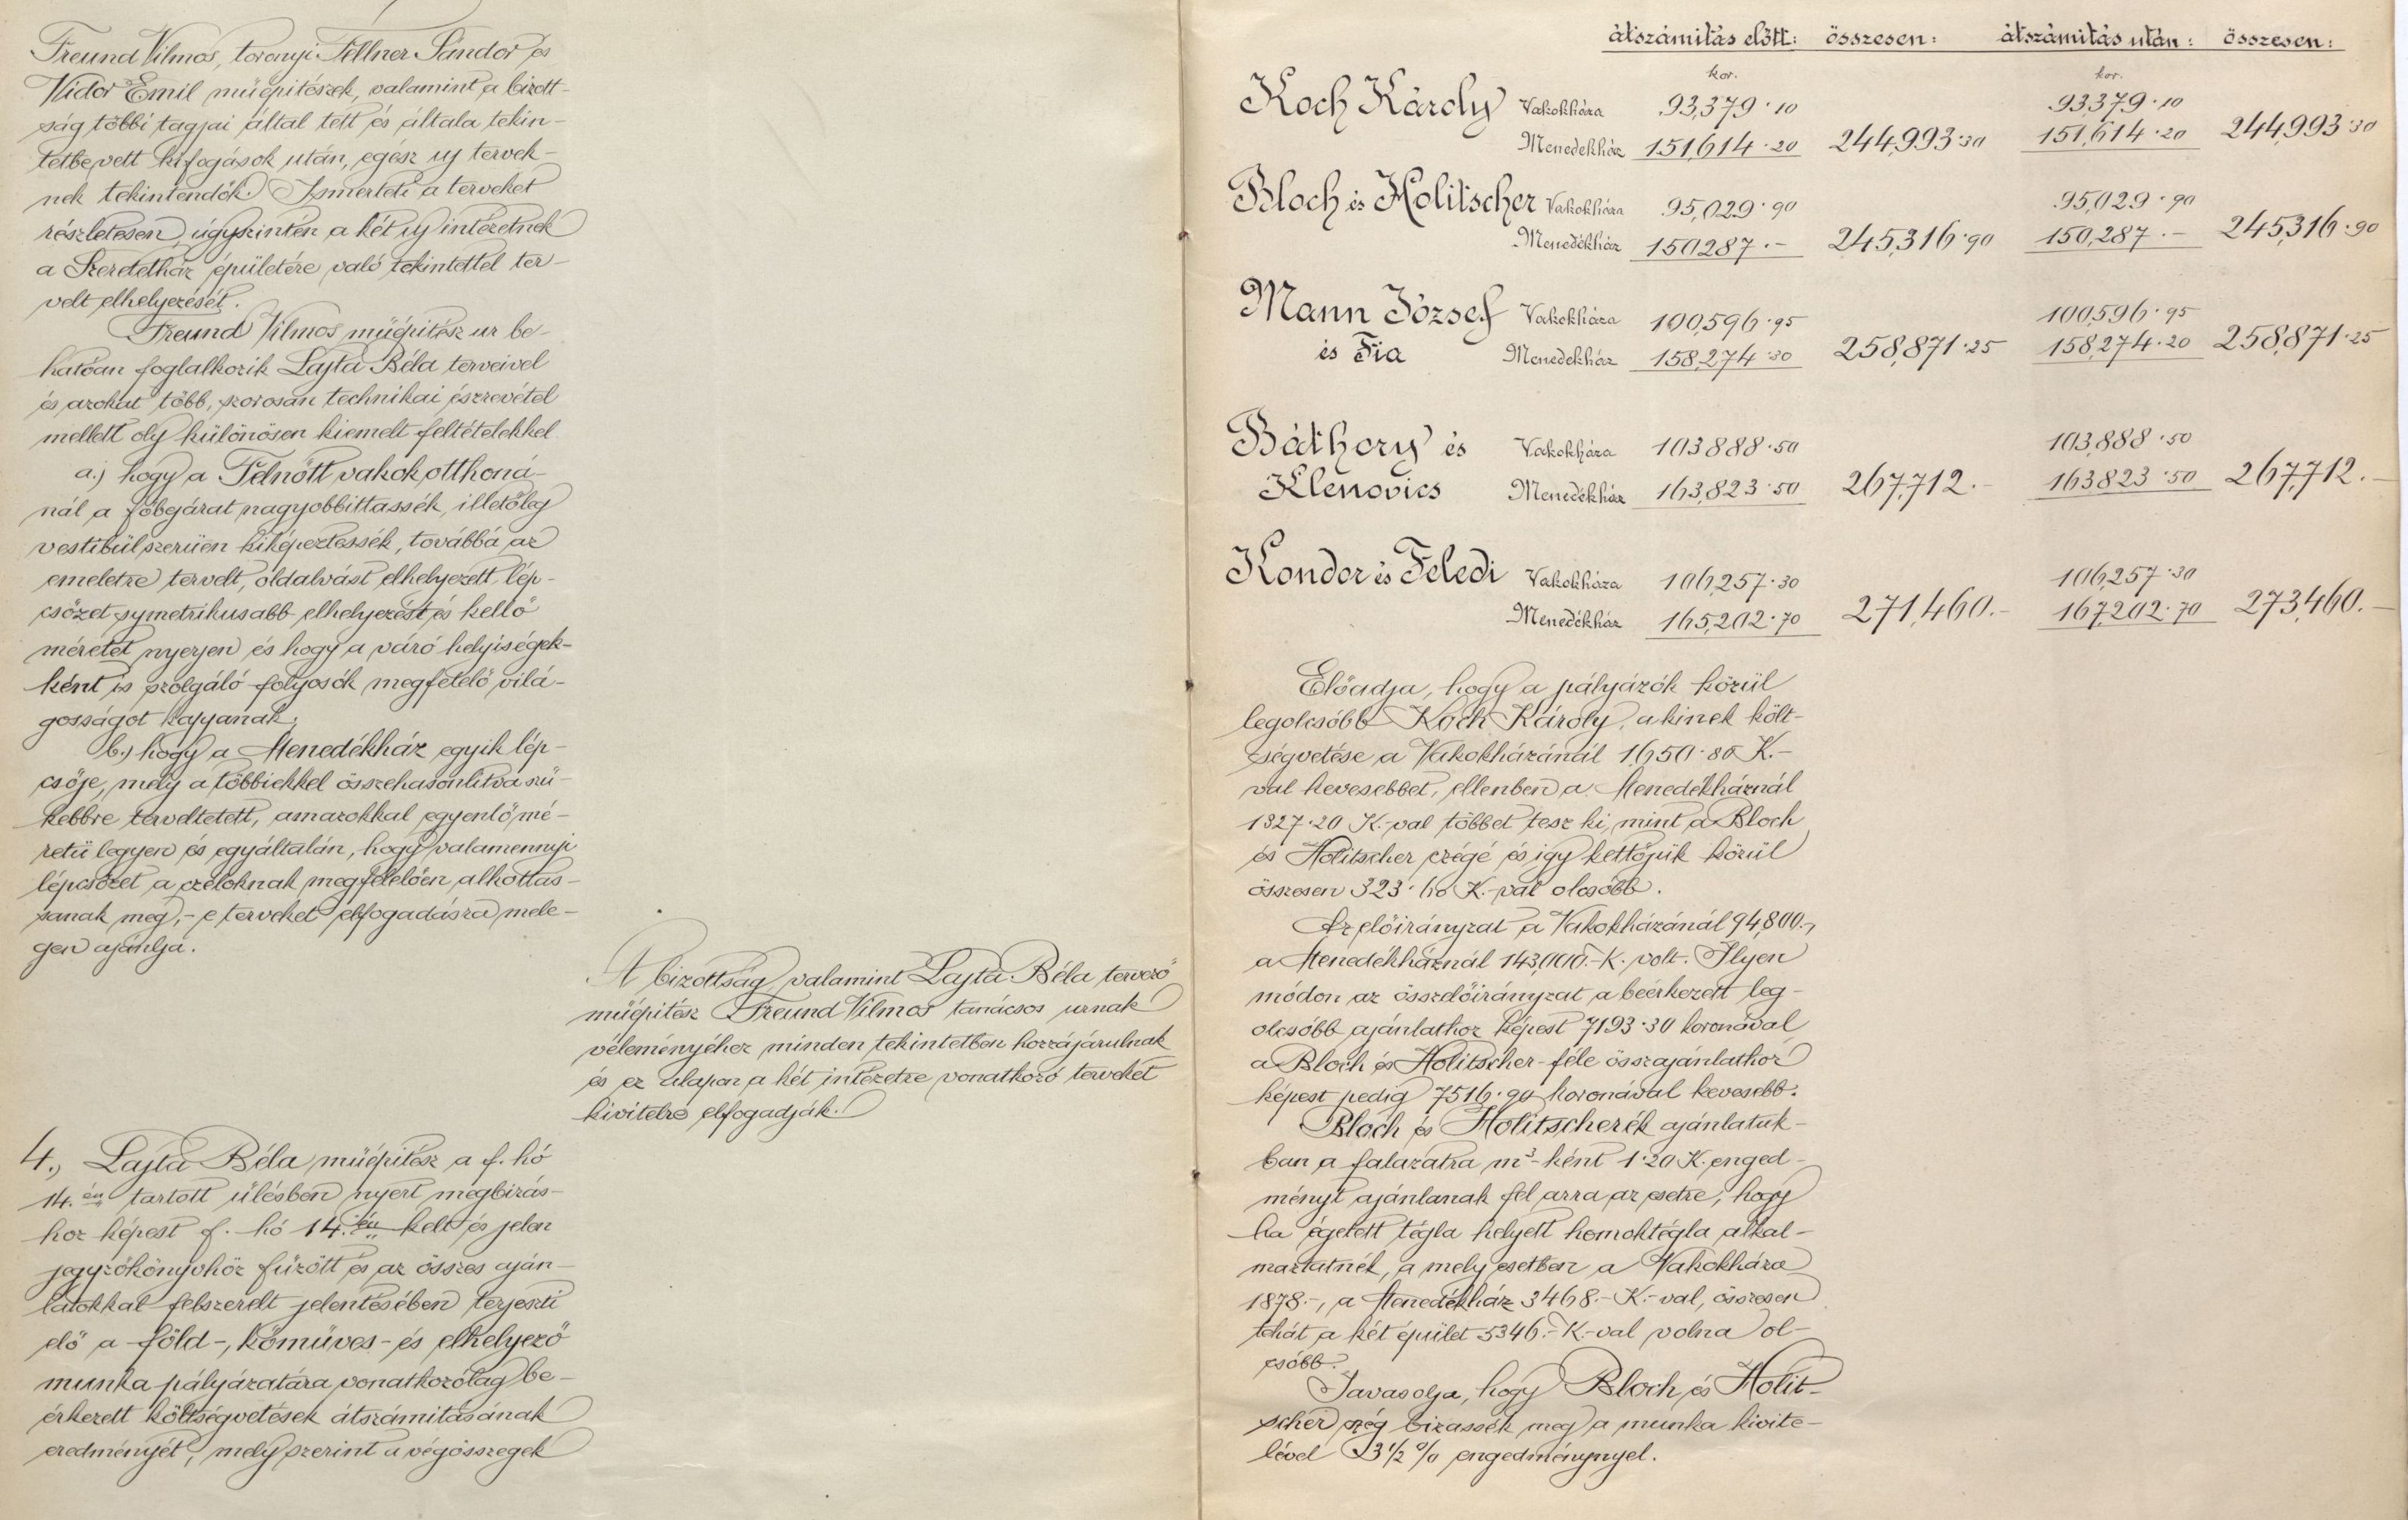 Freund Vilmos, toronyi Fellner Sándor és
Vidor Emil müépitészek, valamint a bizott-
ság többi tagjai által tett és általa tekin-
tetbe vett kifogások után, egész uj tervek-
nek tekintendők. Ismerteti a terveket
részletesen, úgyszintén a két uj intézetnek
a Szeretetház épületére való tekintettel ter-
velt elhelyezését.
Freund Vilmos müépitész ur be-
hatóan foglalkozik Lajta Béla terveivel
és azokat több, szorosan technikai észrevétel
mellett oly különösen kiemelt feltételekkel
a.) hogy a Felnőtt vakok otthoná-
nál a főbejárat nagyobbittassék, illetőleg
vestibülszerüen kiképeztessék, továbbá az
emeletre tervelt, oldalvást elhelyezett lép-
csőzet symetrikusabb elhelyezést és kellő
méretet nyerjen és hogy a váró helyiségek-
ként is szolgáló folyosók megfelelő vilá-
gosságot kapjanak;
b.) hogy a Menedékház egyik lép-
csője, mely a többiekkel összehasonlitva szü-
kebbre terveltetett, amazokkal egyenlő mé-
retü legyen és egyáltalán, hogy valamennyi
lépcsőzet a czéloknak megfelelően alkottas-
sanak meg, - e terveket elfogadásra mele-
gen ajánlja.
A bizottság, valamint Lajta Béla tervező
müépitész Freund Vilmos tanácsos urnak
véleményéhez minden tekintetben hozzájárulnak
és ez alapon a két intézetre vonatkozó terveket
kivitelre elfogadják.
4., Lajta Béla müépitész a f. hó
14.én tartott ülésben nyert megbizás-
hoz képest f. hó 14.én kelt és jelen
jegyzőkönyvhöz füzött és az összes aján-
latokkal felszerelt jelentésében terjeszti
elő a föld-, kőmüves- és elhelyező
munka pályázatára vonatkozólag be-
érkezett költségvetések átszámitásának
eredményét, mely szerint a végösszegek
átszámitás előtt: összesen: átszámitás után: összesen:
kor. kor.
Koch Károly Vakokháza 93,379·10 93,379·10
Menedékház 151,614·20 244,993·30 151,614·20 244,993·30
Bloch és Holitscher Vakokháza 95,029·90 95,029·90
Menedékház 150287.- 245,316·90 150,287.- 245,316·90
Mann József Vakokháza 100,596·95 100,596·95
és Fia Menedékház 158,274·30 258,871·25 158,274·20 258,871·25
Báthory és Vakokháza 103888·50 103,888·50
Klenovics Menedékház 163,823·50 267,712.- 163823·50 267,712.-
Kondor és Feledi Vakokháza 106,257·30 106,257·30
Menedékház 165,202·70 271,460.- 167,202·70 273,460.-
Előadja, hogy a pályázók közül
legolcsóbb Koch Károly, a kinek költ-
ségvetése a Vakokházánál 1650·80 K.-
val kevesebbet, ellenben a Menedékháznál
1327·20 K.-val többet tesz ki, mint a Bloch
és Holitscher czégé és igy kettőjük közül
összesen 323·60 K.-val olcsóbb.
Az előirányzat a Vakokházánál 94,800.-,
a Menedékháznál 143,000.- K. volt. Ilyen
módon az összelőirányzat a beérkezett leg-
olcsóbb ajánlathoz képest 7193·30 koronával,
a Bloch és Holitscher-féle összajánlathoz
képest pedig 7516·90 koronával kevesebb.
Bloch és Holitscherék ajánlatuk-
ban a falazatra m³-ként 1·20 K. enged-
ményt ajánlanak fel arra az esetre, hogy
ha égetett tégla helyett homoktégla alkal-
maztatnék, a mely esetben a Vakokháza
1878.-, a Menedékház 3468.- K.-val, összesen
tehát a két épület 5346.- K.-val volna ol-
csóbb.
Javasolja, hogy Bloch és Holit-
scher czég bizassék meg a munka kivite-
lével 3½ % engedménynyel.